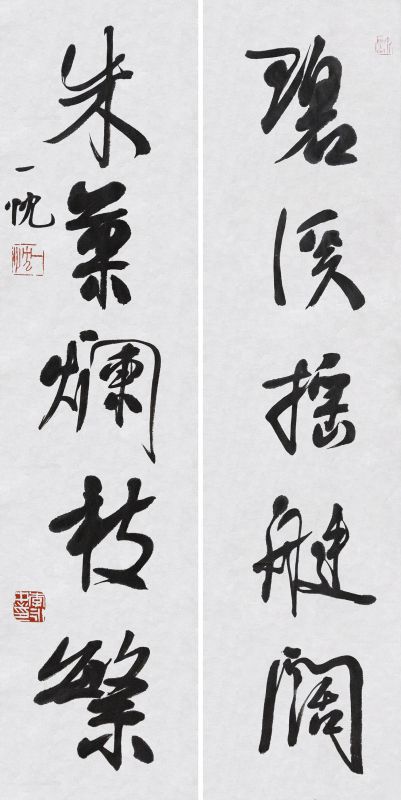 碧溪摇艇阔
朱菓烂枝繁
一忱